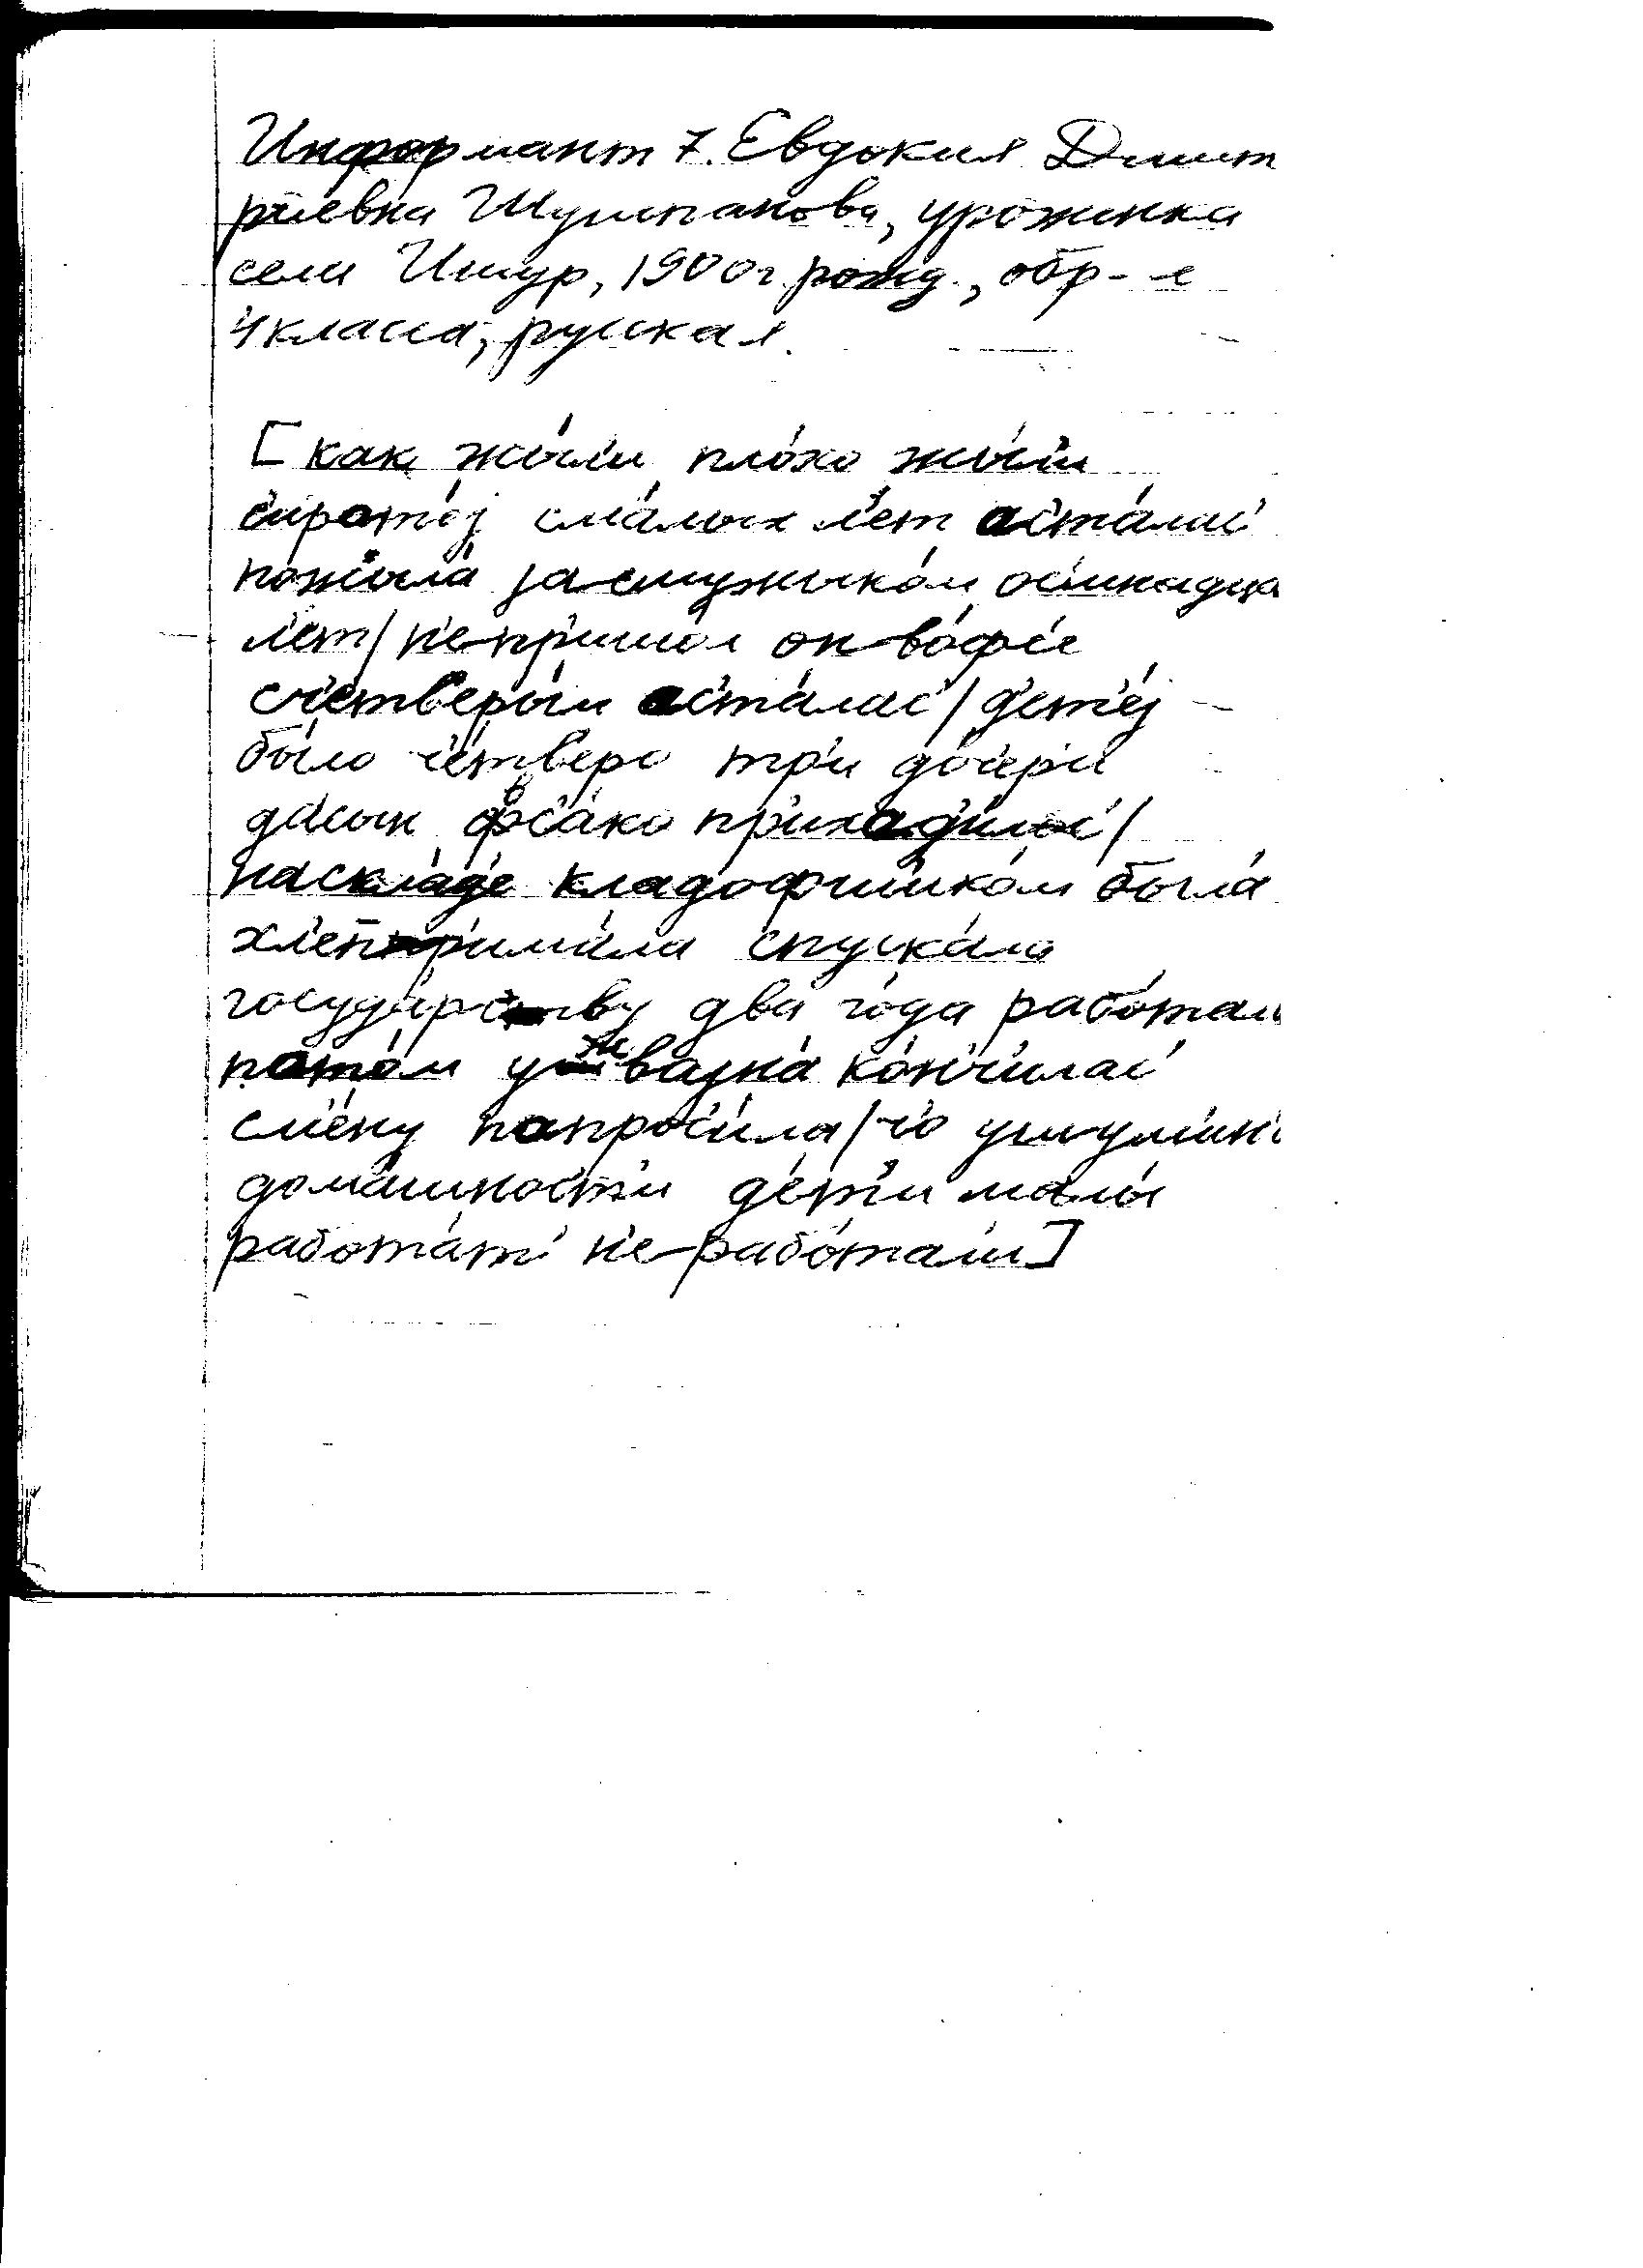 Информант 7. Евдокия Дмит
риевна Шумпанова, уроженка
села Ишур, 1900г рожд., обр-е
4 класса, русская.
[как жы́л'и пло́хо жы́л'и
с'ирото́j сма́лых л'ет аста́лас'
пожыла́ засмужыко́м ос'имнадца
л'ет/ н'епр'ишо́л он во́фс'е
сч'етв'еры́м аста́лас'/ д'ет'е́j
бы́ло ч'е́тв'еро тр'и до́ч'ер'и
дасы́н фс'а́ко пр'ихад'и́лос'/
наскла́д'е кладофш'ико́м была́
хл'еппр'има́ла спуска́ла
госуда́рству два го́да рабо́тала
пато́м ужваjна́ ко́нч'илас'
см'е́ну папрос'и́ла/ ч'о
дома́шност'и д'е́т'и малы́
работа́т' н'е рабо́тал'и]